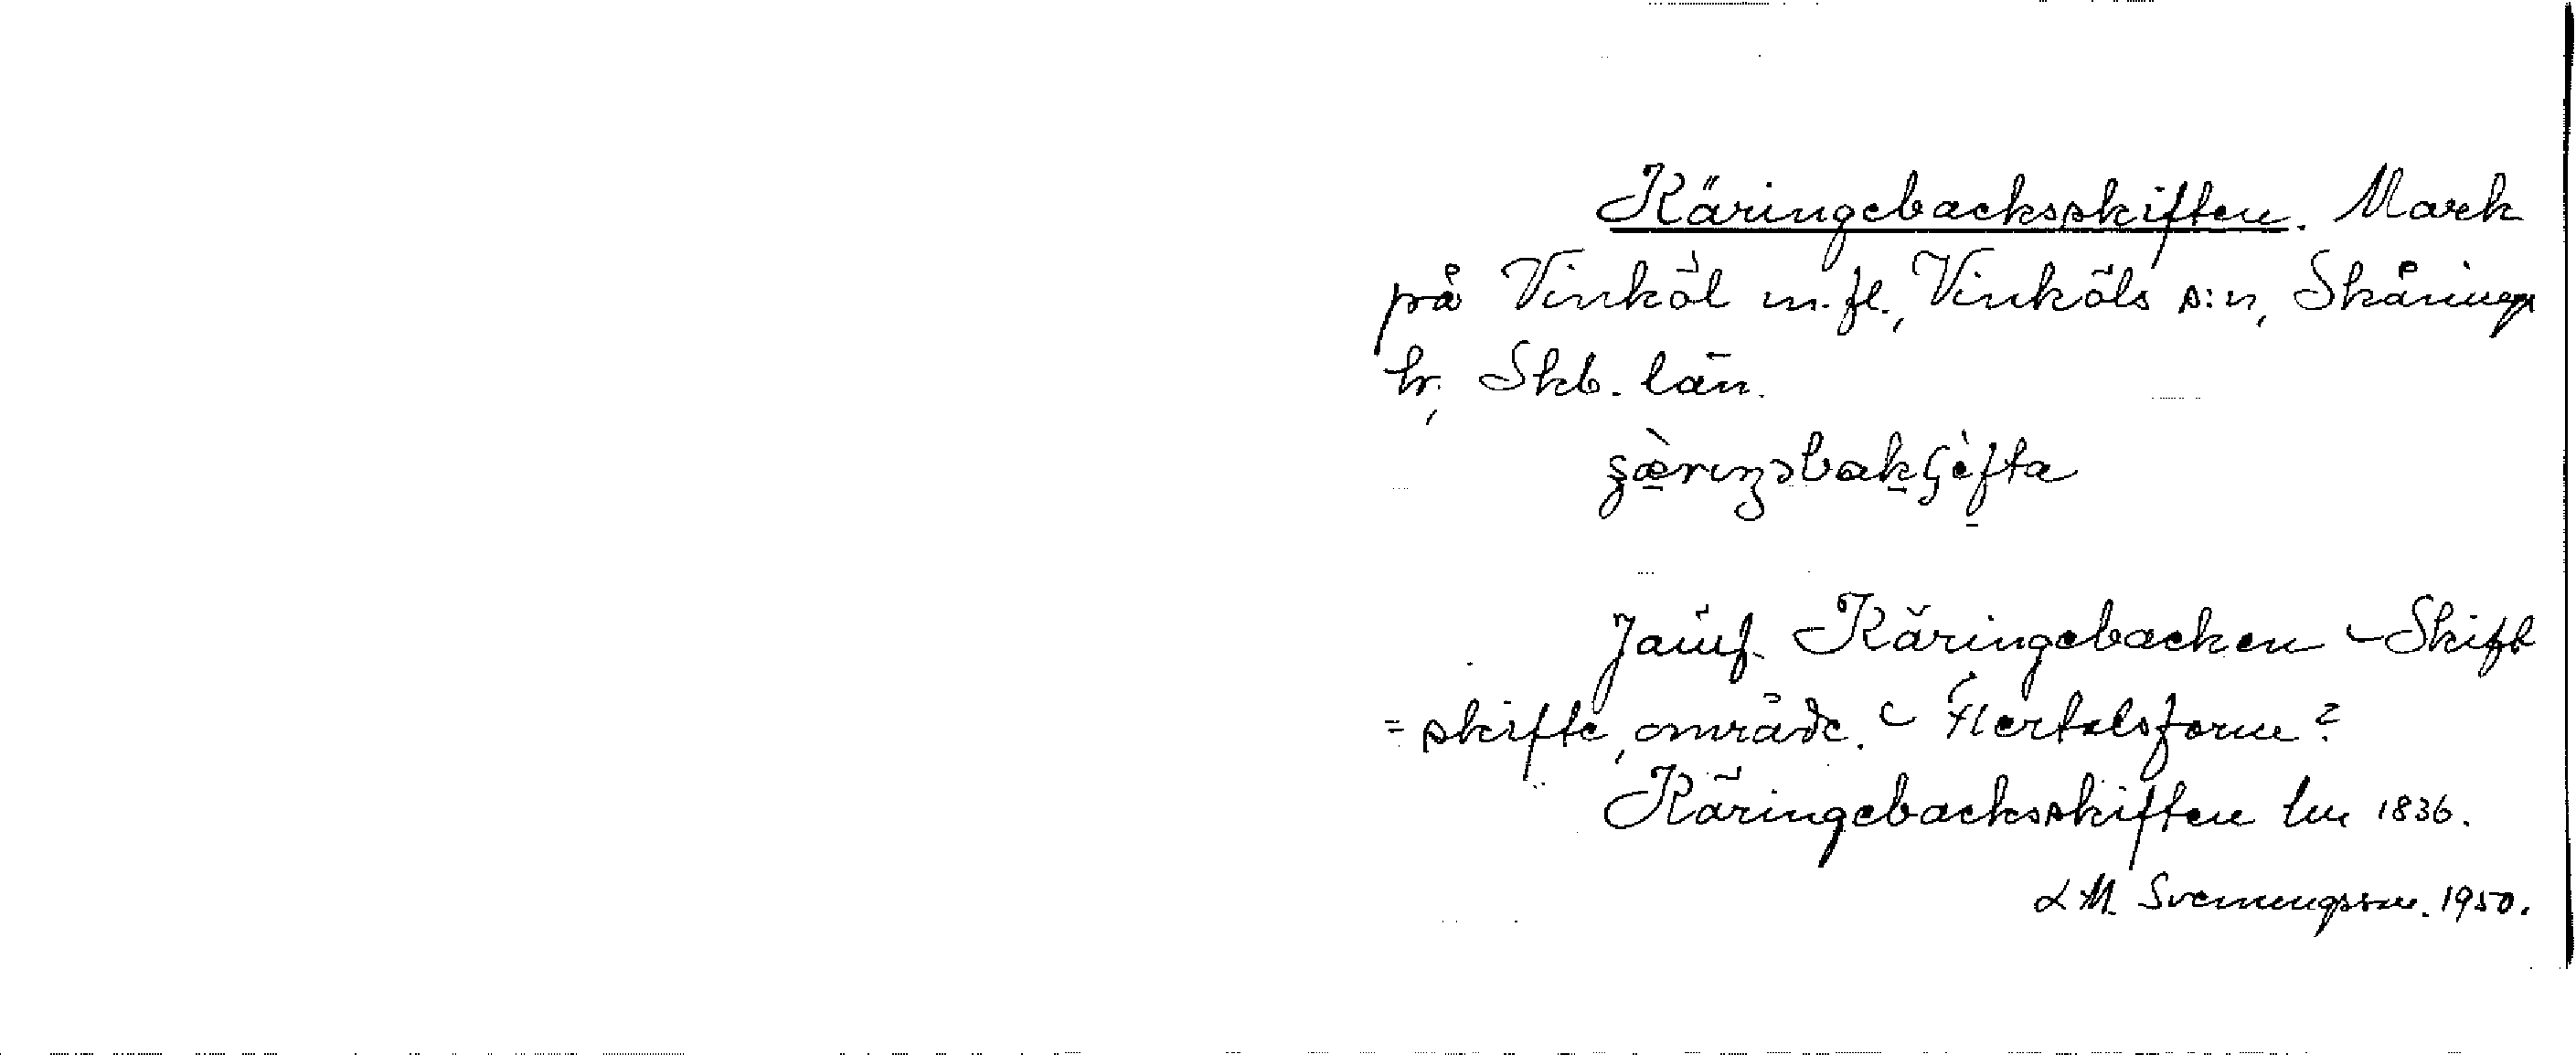 Käringebacksskiften. Mark
på Vinköl m.fl., Vinköls s:n, Skånings
hr, Skb. län.
Jämf. Käringebacken – Skift
= skifte, område. – Flertalsform?
Käringebacksskiften lm 1836.
L M Svenungsson. 1950.